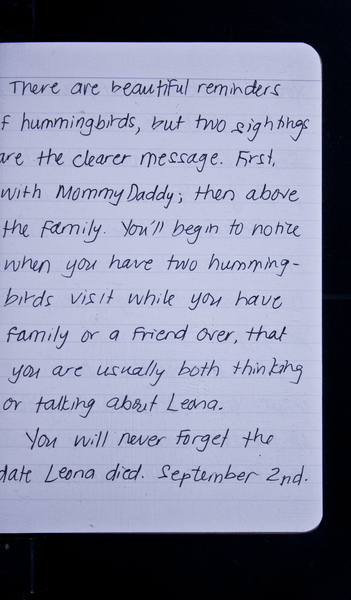 There are beautiful reminders
f hummingbirds, but two sightings
are the clearer message. First,
with Mommy Daddy; then above
the family. You'll begin to notice
when you have two humming-
birds visit while you have
family or a friend over, that
you are usually both thinking
or talking about Leona.
You will never forget the
date Leona died. September 2nd.